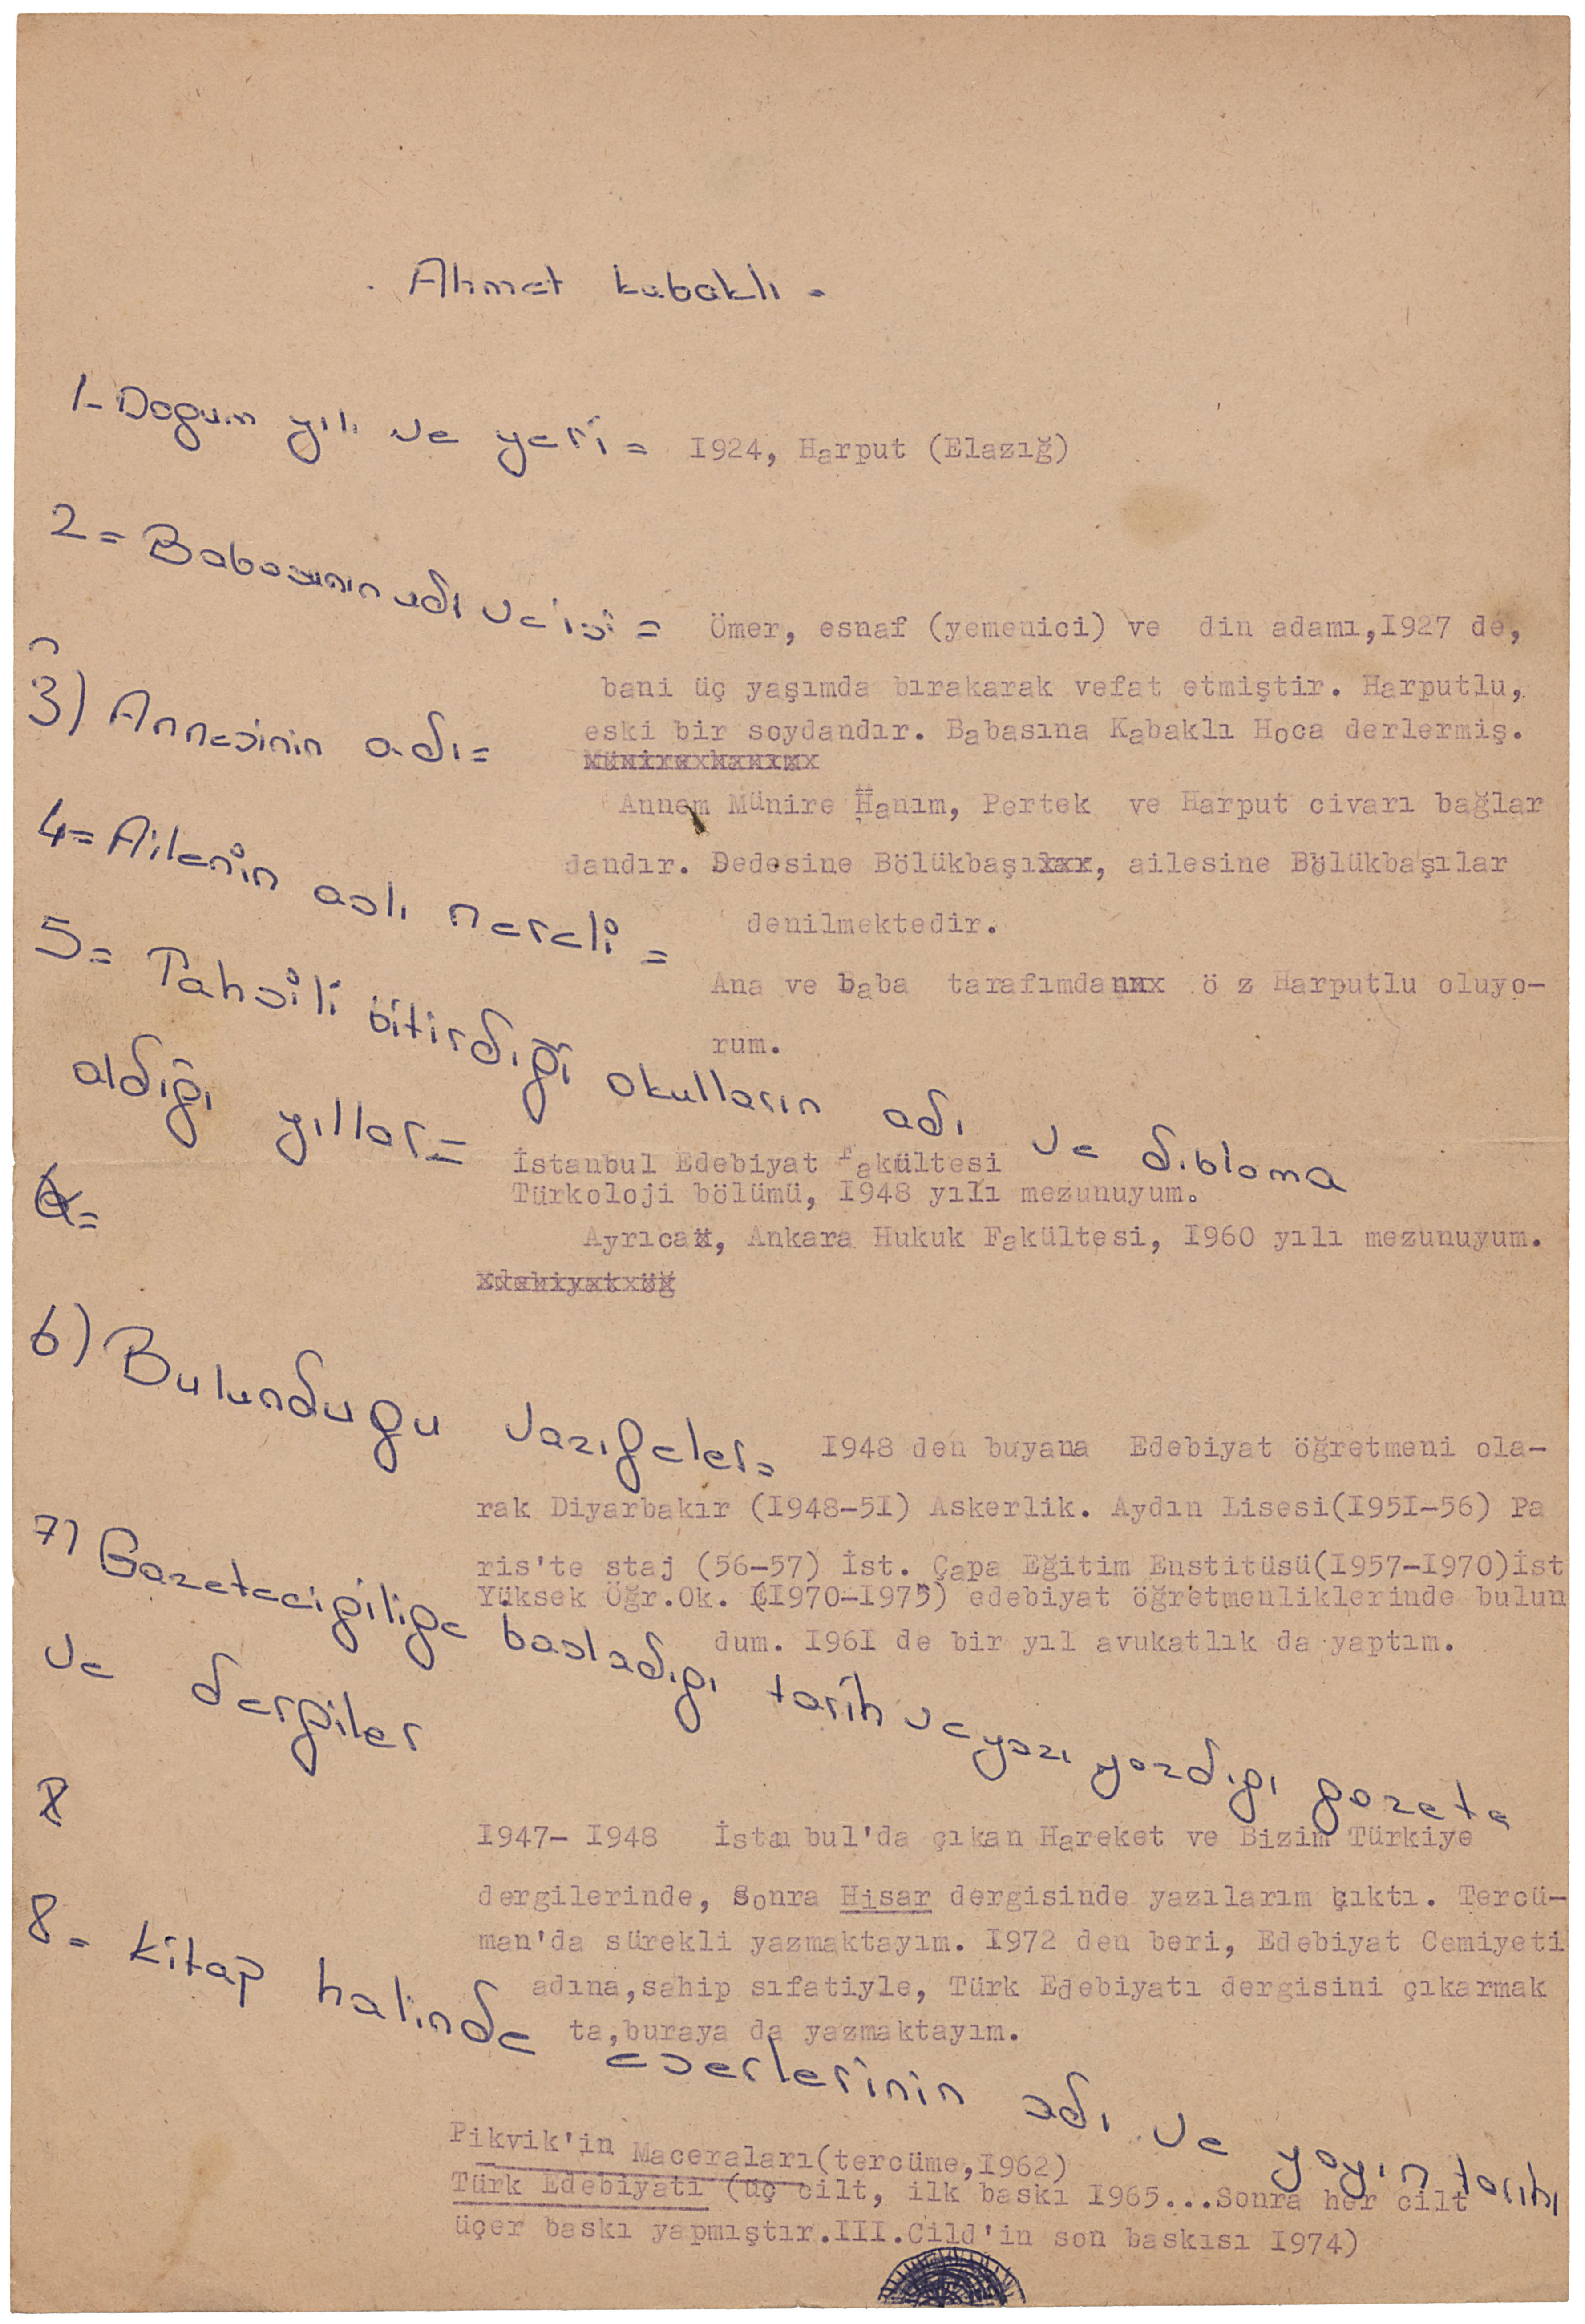 . Ahmet kabaklı -
1- Dogum yılı ve yeri = I924, Harput (Elazığ)
2= Babasının adı ve işi = Ömer, esnaf (yemenici) ve din adamı,I927 de,
bani üç yaşımda bırakarak vefat etmiştir. Harputlu,
eski bir soydandır. Babasına Kabaklı Hoca derlermiş.
3) Annesinin adı=
Annem Münire Hanım, Pertek ve Harput civarı bağlar
dandır. Dedesine Bölükbaşıxxx, ailesine Bölükbaşılar
denilmektedir.
4= Ailenin aslı nereli =
Ana ve baba tarafımdannx ö z Harputlu oluyo-
rum.
5= Tahsili bitirdiği okulların adı ve dibloma
aldığı yıllar=
İstanbul Edebiyat Fakültesi
Türkoloji bölümü, I948 yılı mezunuyum.
6=
Ayrıcax, Ankara Hukuk Fakültesi, I960 yılı mezunuyum.
Edebiyat öğ
6) Bulundugu vazigeler= I948 den buyana Edebiyat öğretmeni ola-
rak Diyarbakır (I948-5I) Askerlik. Aydın Lisesi(I95I-56) Pa
ris'te staj (56-57) İst. Çapa Eğitim Enstitüsü(I957-I970)İst
Yüksek Öğr.Ok. (I970-I975) edebiyat öğretmenliklerinde bulun
dum. I96I de bir yıl avukatlık da yaptım.
7) Gazetecigilige basladıgı tarih ve yazı yazdıgı gazete
ve dergiler
7
I947- I948 İstan bul'da çıkan Hareket ve Bizim Türkiye
dergilerinde, Sonra Hisar dergisinde yazılarım çıktı. Tercü-
man'da sürekli yazmaktayım. I972 den beri, Edebiyat Cemiyeti
adına,sahip sıfatiyle, Türk Edebiyatı dergisini çıkarmak
ta,buraya da yazmaktayım.
8- kitap halinde eserlerinin adı ve yayın tarihi
Pikvik'in Maceraları(tercüme,I962)
Türk Edebiyatı (üç cilt, ilk baskı I965...Sonra her cilt
üçer baskı yapmıştır.III.Cild'in son baskısı I974)